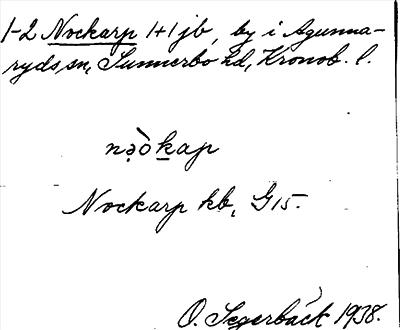 1-2 Nockarp 1+1 jb, by i Agunna-
ryds sn, Sunnerbo hd, Kronob. l.
nə̣òkap
Nockarp kb, G15.
O. Segerbäck 1938.